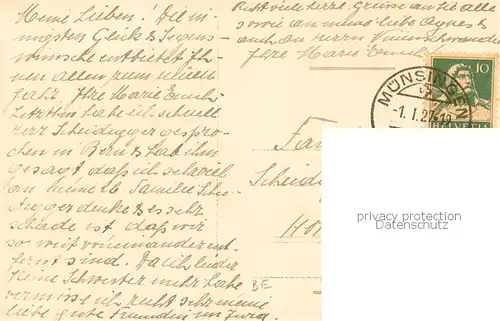 Meine Lieben! Die in-
nigsten Glück & Segens-
wünsche entbietet Ih-
nen allen zum neuen
Jahr Ihre Marie
Letzthin habe ich schnell
Herr Scheidegger gespro-
chen in Bern & hab ihm
gesagt daß ich so viel
an meine lb Familie Schei-
degger denke & es sehr
schade ist daß wir
so weit voneinander ent-
fernt sind. Da ich leider
keine Schwester mehr habe
vermisse ich recht sehr meine
liebe gute Freundin im Jura.
Recht viele herzl. Grüsse an Sie alle
sowie an liebe Agnes &
auch an Herrn
Ihre Marie
MÜNSINGEN
-1. I. 27-19
10
HELVETIA
Fam
Scheide
BE
privacy protection
Datenschutz